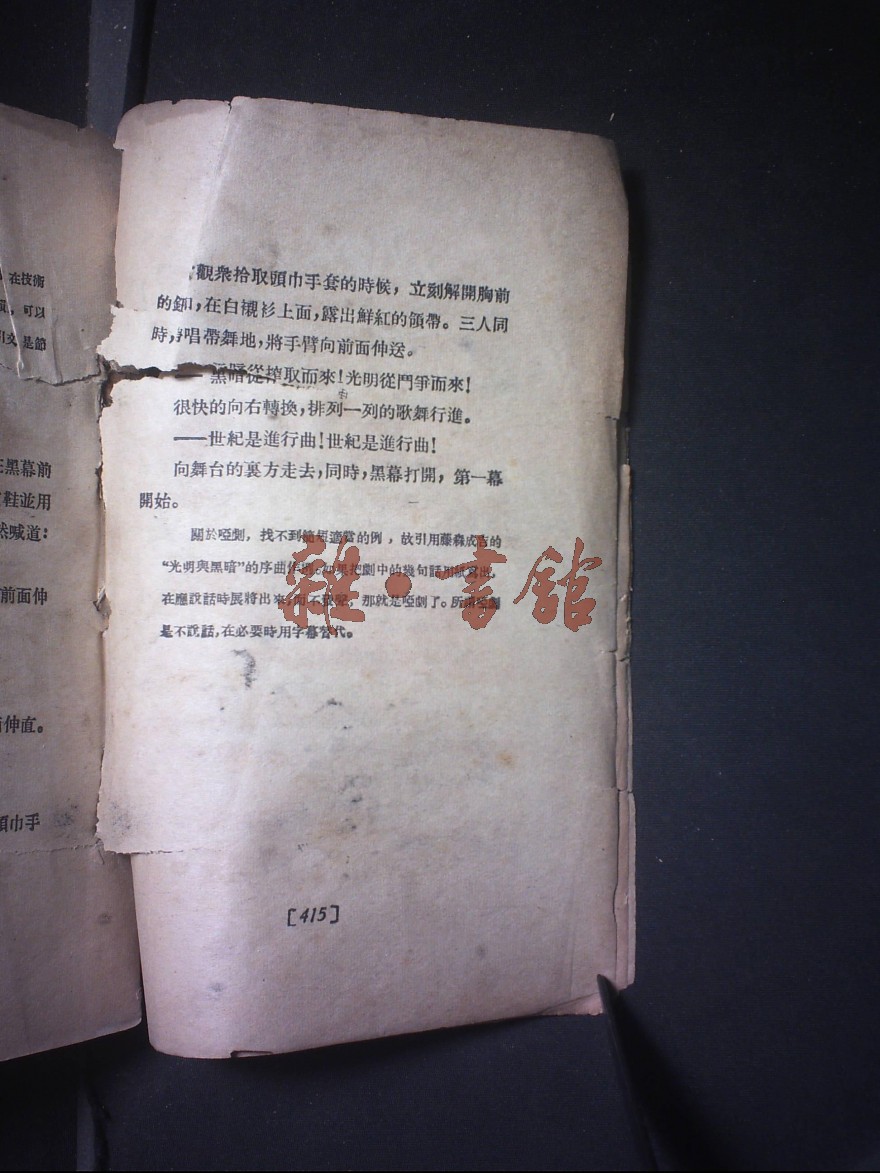 在技術
可以
引文是節
黑幕前
鞋並用
然喊道:
前面伸
伸直。
頭巾手
觀衆拾取頭巾手套的時候,立刻解開胸前
的釦,在白襯衫上面,露出鮮紅的領帶。三人同
時,唱帶舞地,將手臂向前面伸送。
黑暗從榨取而來!光明從鬥爭而來!
很快的向右轉換,排列一列的歌舞行進。
——世紀是進行曲!世紀是進行曲!
向舞台的裏方走去,同時,黑幕打開,第一幕
開始。
關於啞劇,找不到簡短適當的例,故引用藤森成吉的
“光明與黑暗”的序曲作例。如果把劇中的幾句話用紙寫出,
在應說話時展將出來,而不發聲,那就是啞劇了。所謂啞劇
是不說話,在必要時用字幕替代。
雜·書館
[415]